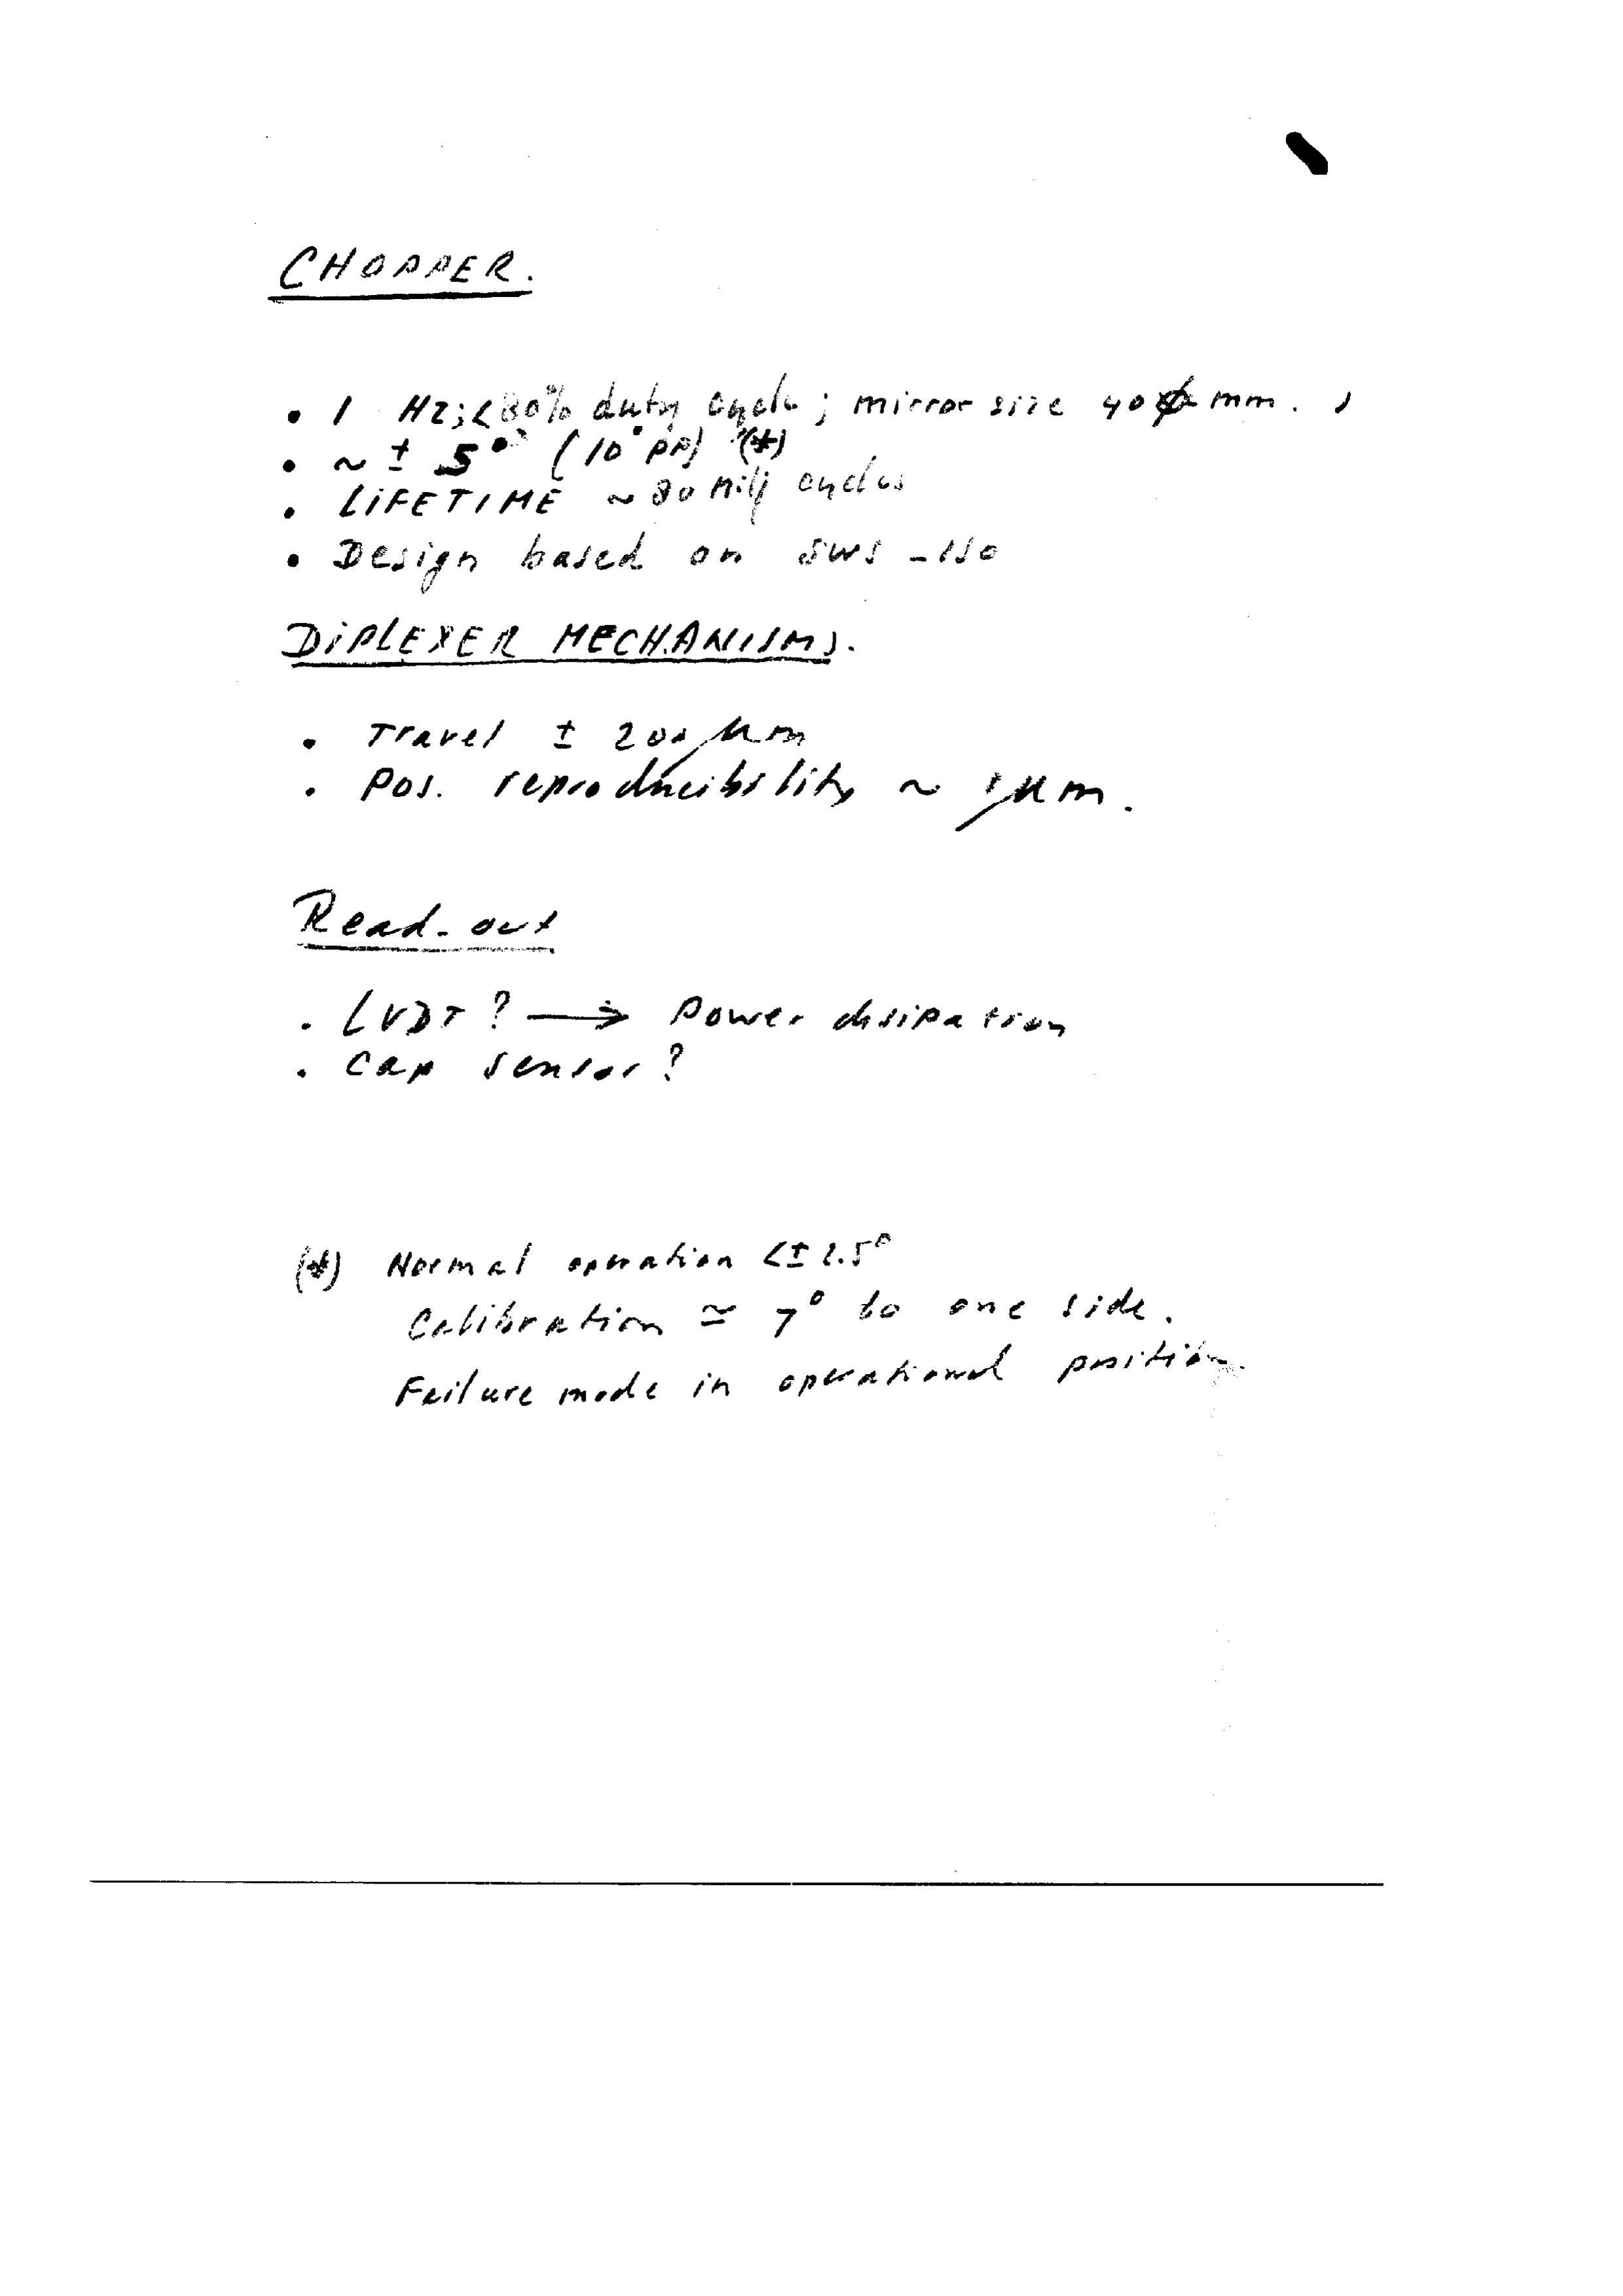 CHOPPER.
• 1 Hz; <80% duty cycle; mirror size 40 ø mm.
• ~ ± 5° (10° pp) (*)
• LIFETIME ~ 80 Mill cycles
• Design based on SWS - ISO
DIPLEXER MECHANISMS.
• Travel ± 200 μm
• Pos. reproducibility ~ 1 μm.
Read-out
• LVDT? → Power dissipation
• Cap sensor?
(*) Normal operation <± 2.5°
Calibration ≃ 7° to one side.
Failure mode in operational position.